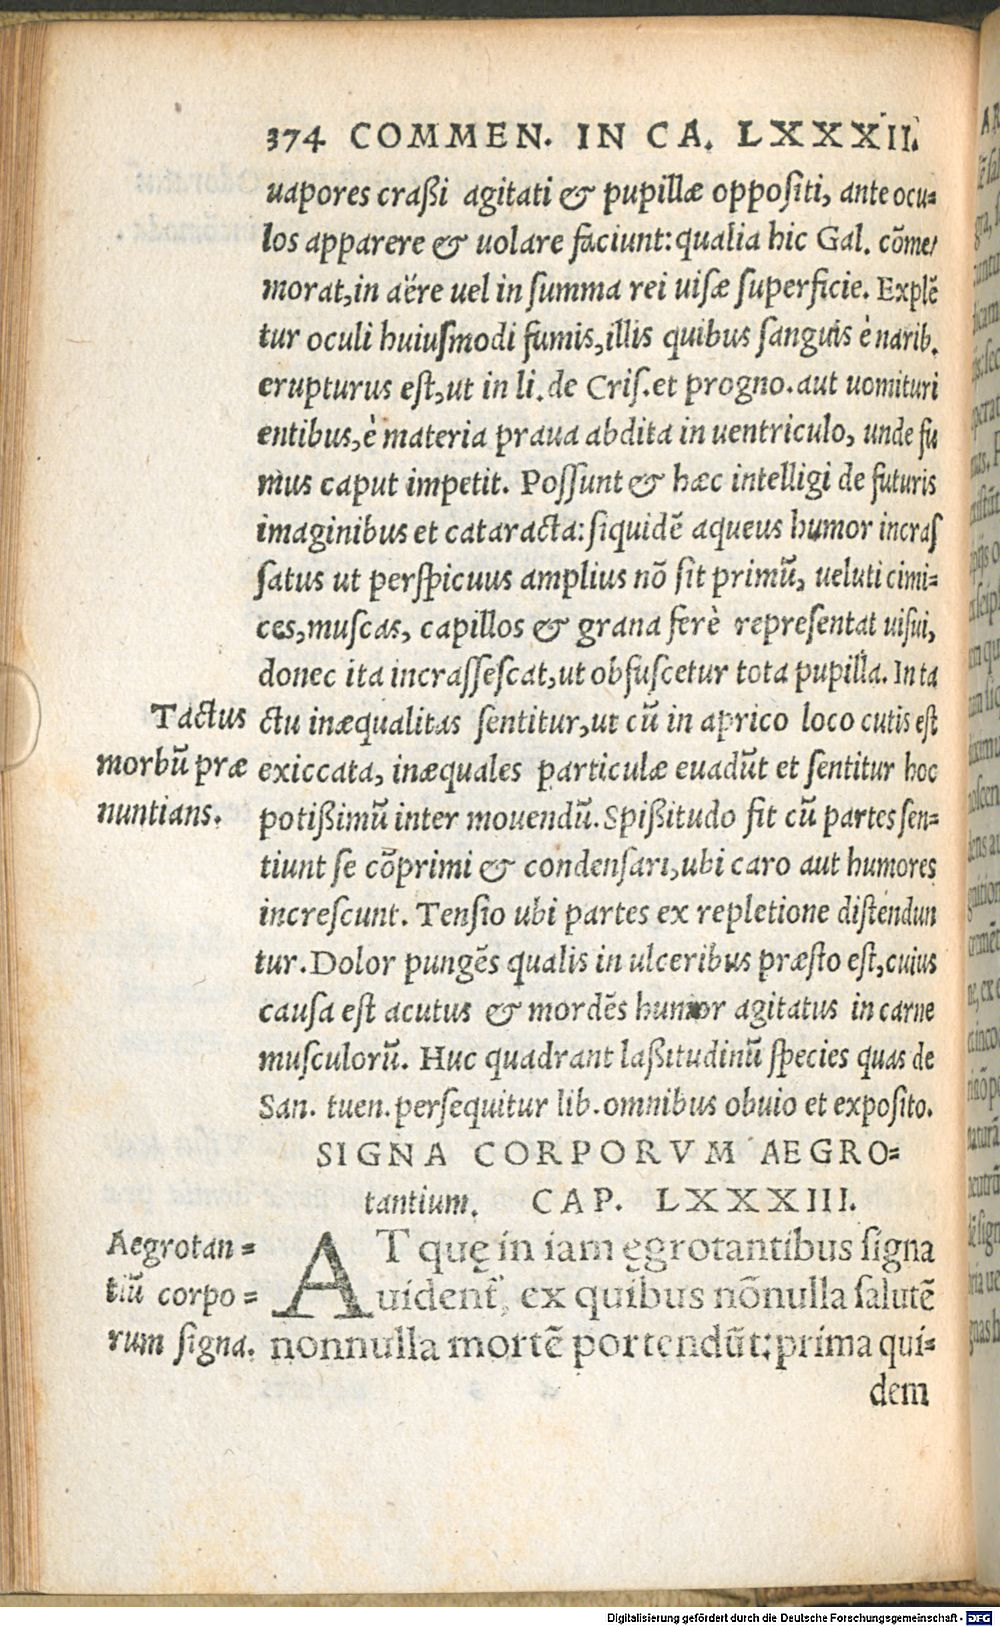 374 COMMEN. IN CA. LXXXII.
uapores craßi agitati & pupillæ oppositi, ante ocu=
los apparere & uolare faciunt: qualia hic Gal. cōme/
morat, in aëre uel in summa rei uisæ superficie. Explē
tur oculi huiusmodi fumis, illis quibus sanguis è narib.
erupturus est, ut in li. de Cris. et progno. aut uomituri
entibus, è materia praua abdita in uentriculo, unde fu
mus caput impetit. Possunt & hæc intelligi de futuris
imaginibus et cataracta: siquidē aqueus humor incras
satus ut perspicuus amplius nō sit primū, ueluti cimi=
ces, muscas, capillos & grana ferè representat uisui,
donec ita incrassescat, ut obfuscetur tota pupilla. In ta
Tactus
morbū præ
nuntians.
ctu inæqualitas sentitur, ut cū in aprico loco cutis est
exiccata, inæquales particulæ euadūt et sentitur hoc
potißimū inter mouendū. Spißitudo fit cū partes sen=
tiunt se cōprimi & condensari, ubi caro aut humores
increscunt. Tensio ubi partes ex repletione distendun
tur. Dolor pungēs qualis in ulceribus præsto est, cuius
causa est acutus & mordēs humor agitatus in carne
musculorū. Huc quadrant laßitudinū species quas de
San. tuen. persequitur lib. omnibus obuio et exposito.
SIGNA CORPORVM AEGRO=
tantium. CAP. LXXXIII.
Aegrotan=
tiū corpo=
rum signa.
AT quę in iam ęgrotantibus signa
uident᷑, ex quibus nōnulla salutē
nonnulla mortē portendūt: prima qui=
dem
Digitalisierung gefördert durch die Deutsche Forschungsgemeinschaft - DFG